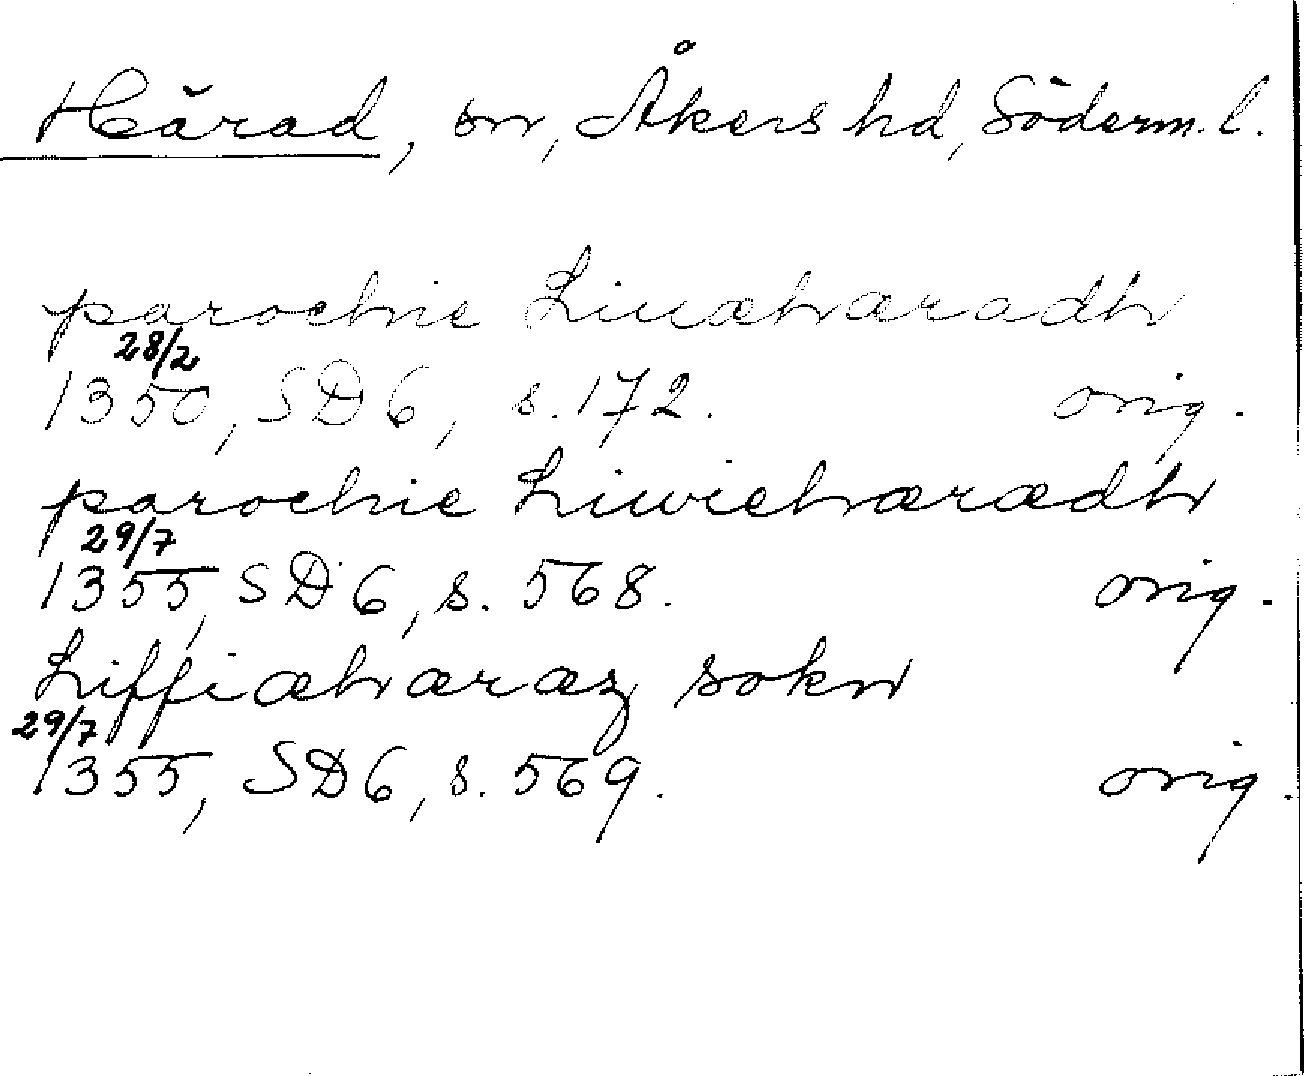 Härad, sn, Åkers hd, Söderm. l.
parochie Liuæhæradh
28/2
1350, SD 6, s. 172. orig.
parochie Liwiehærædh
29/7
1355, SD 6, s. 568. orig.
Liffiæhæræz sokn
29/7
1355, SD 6, s. 569. orig.